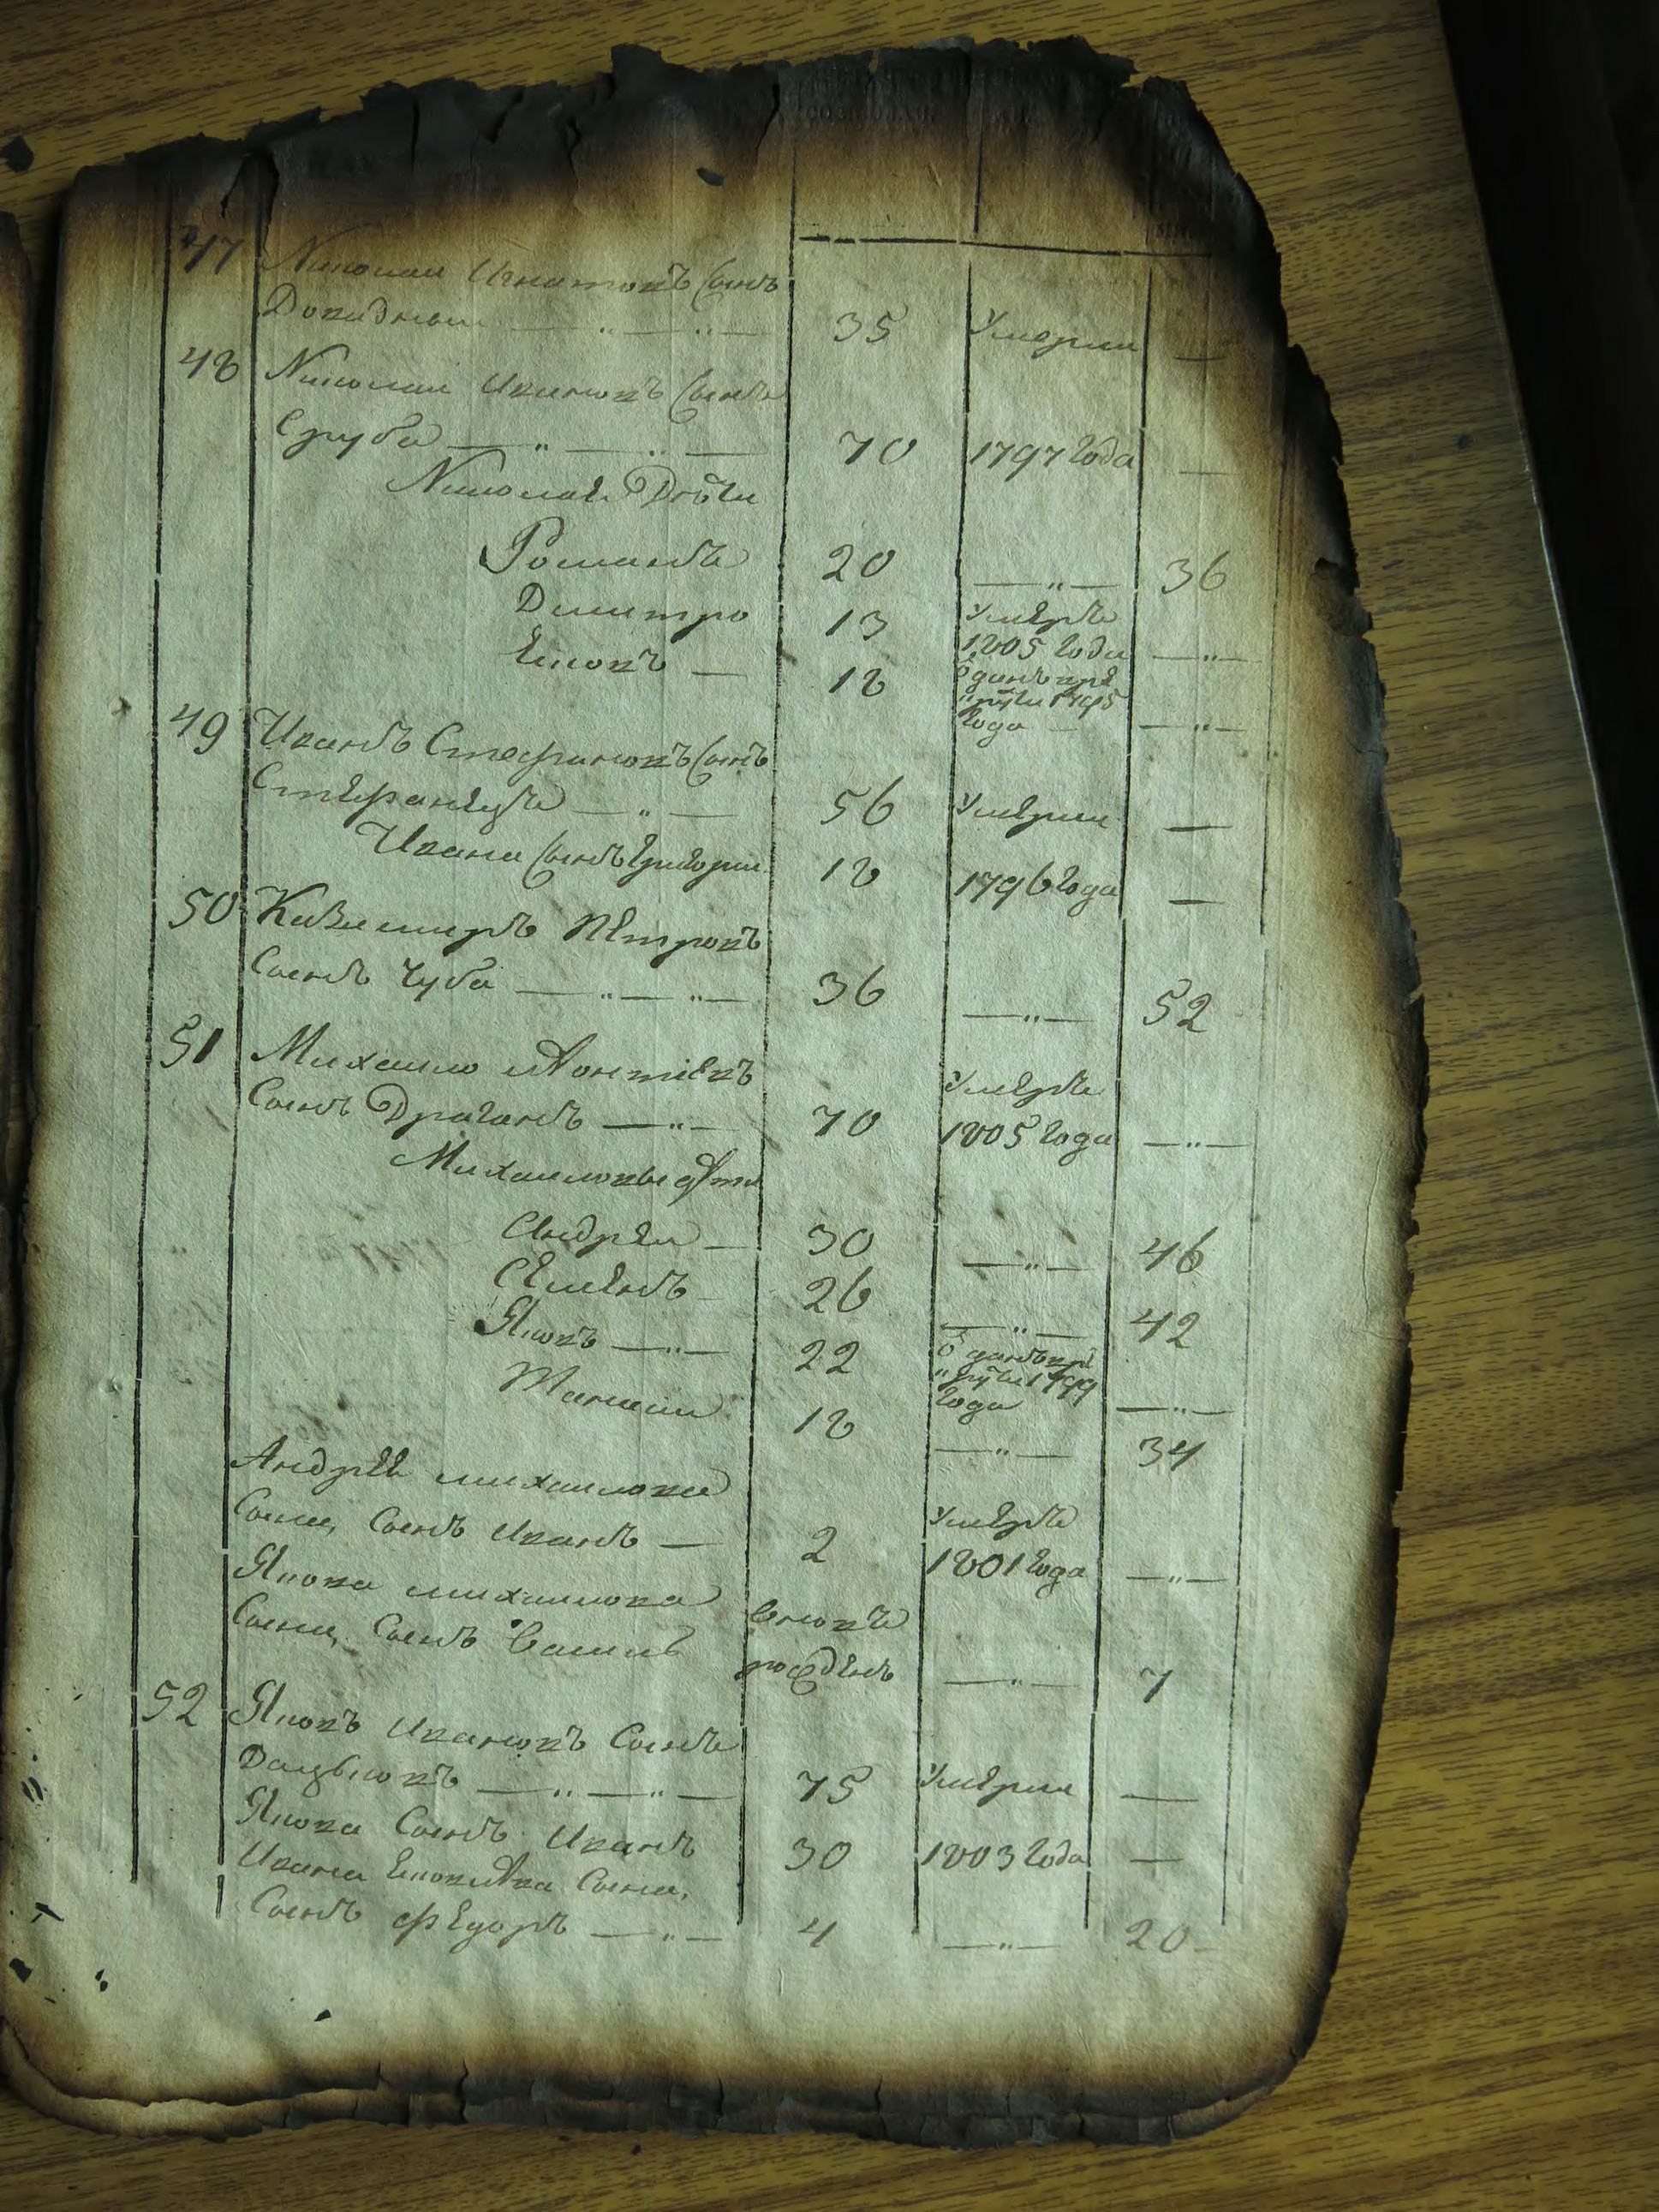 47 Николай Игнатовъ Сынъ
35 Умерли —
48 Николай Ивановъ Сынъ
Сруба — „ — „ — 70 1797 года —
Николая Дѣти
Романъ 20 — „ — 36
Дмитро 13 Умеръ
1805 года — „ —
Яковъ — 18 отданъ въ ре
круты 1795
года — „ —
49 Иванъ Стефановъ Сынъ
56 Умерли —
Ивана Сынъ Григори 18 1796 года —
50 Казимиръ Петровъ
Сынъ Чуба — „ — „ — 36 — „ — 52
51 Михайло
Умеръ
Сынъ Драганъ — „ — 70 1805 года — „ —
Михайловы дѣти
Андрей — 30 — „ — 46
Семенъ 26 — „ — 42
Яковъ — „ — 22 отданъ въ ре
круты 1799
года — „ —
18 — „ — 34
Андрея Михайлова
Сына, Сынъ Иванъ — 2 Умеръ
1801 года — „ —
Якова Михайлова
Сына, Сынъ Василь вновь
рожденъ — „ — 7
52 Яковъ Ивановъ Сынъ
75 Умерли —
Якова Сынъ Иванъ 30 1803 года —
Ивана Сына,
Сынъ Федоръ — „ — 4 — „ — 20 —